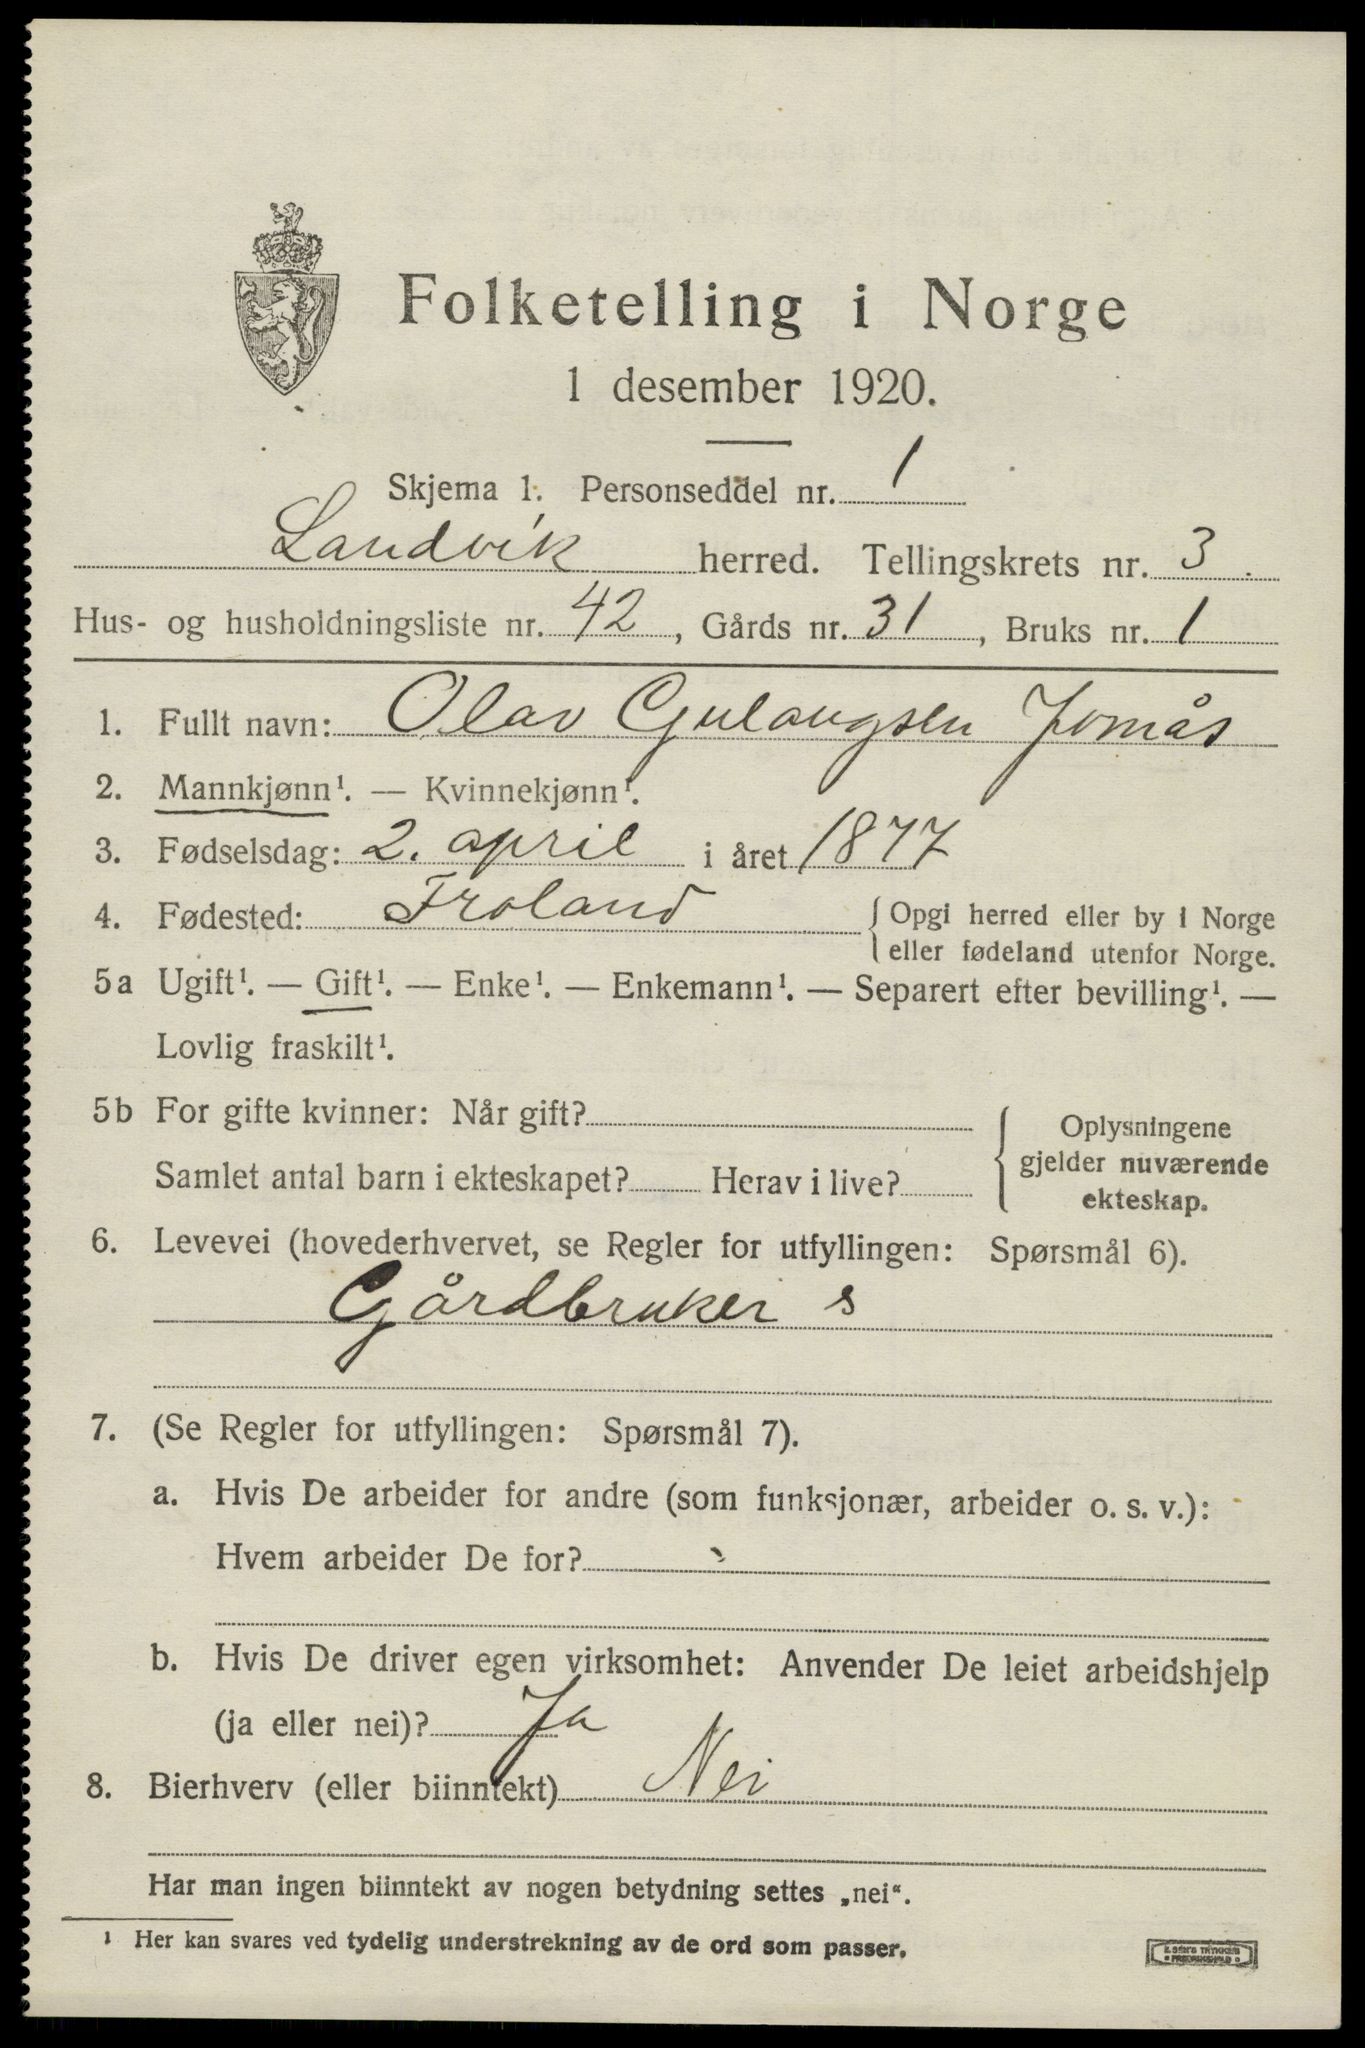 Folketelling i Norge
1 desember 1920.
Skjema 1. Personseddel nr. 1
Landvik herred. Tellingskrets nr. 3.
Hus- og husholdningsliste nr. 42, Gårds nr. 31, Bruks nr. 1
1. Fullt navn: Olav Gulaugsen Jomås
2. Mannkjønn¹. — Kvinnekjønn¹.
3. Fødselsdag: 2. april i året 1877
4. Fødested: Froland { Opgi herred eller by i Norge
eller fødeland utenfor Norge.
5a Ugift¹. — Gift¹. — Enke¹. — Enkemann¹. — Separert efter bevilling¹. —
Lovlig fraskilt¹.
5b For gifte kvinner: Når gift? { Oplysningene
gjelder nuværende
Samlet antal barn i ekteskapet? Herav i live? ekteskap.
6. Levevei (hovederhvervet, se Regler for utfyllingen: Spørsmål 6).
Gårdbruker s
7. (Se Regler for utfyllingen: Spørsmål 7).
a. Hvis De arbeider for andre (som funksjonær, arbeider o. s. v.):
Hvem arbeider De for?
b. Hvis De driver egen virksomhet: Anvender De leiet arbeidshjelp
(ja eller nei)? Ja
8. Bierhverv (eller biinntekt) Nei
Har man ingen biinntekt av nogen betydning settes „nei“.
¹ Her kan svares ved tydelig understrekning av de ord som passer.